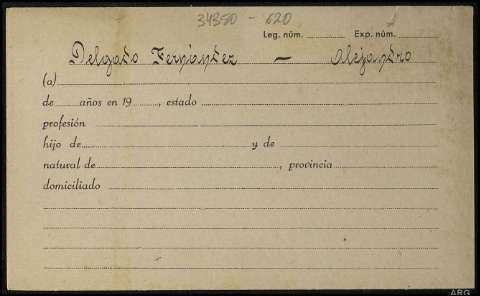 34350 - 620
Leg. núm. Exp. núm.
Delgado Fernández — Alejandro
(a)
de años en 19 , estado
profesión
hijo de y de
natural de , provincia
domiciliado
ARG